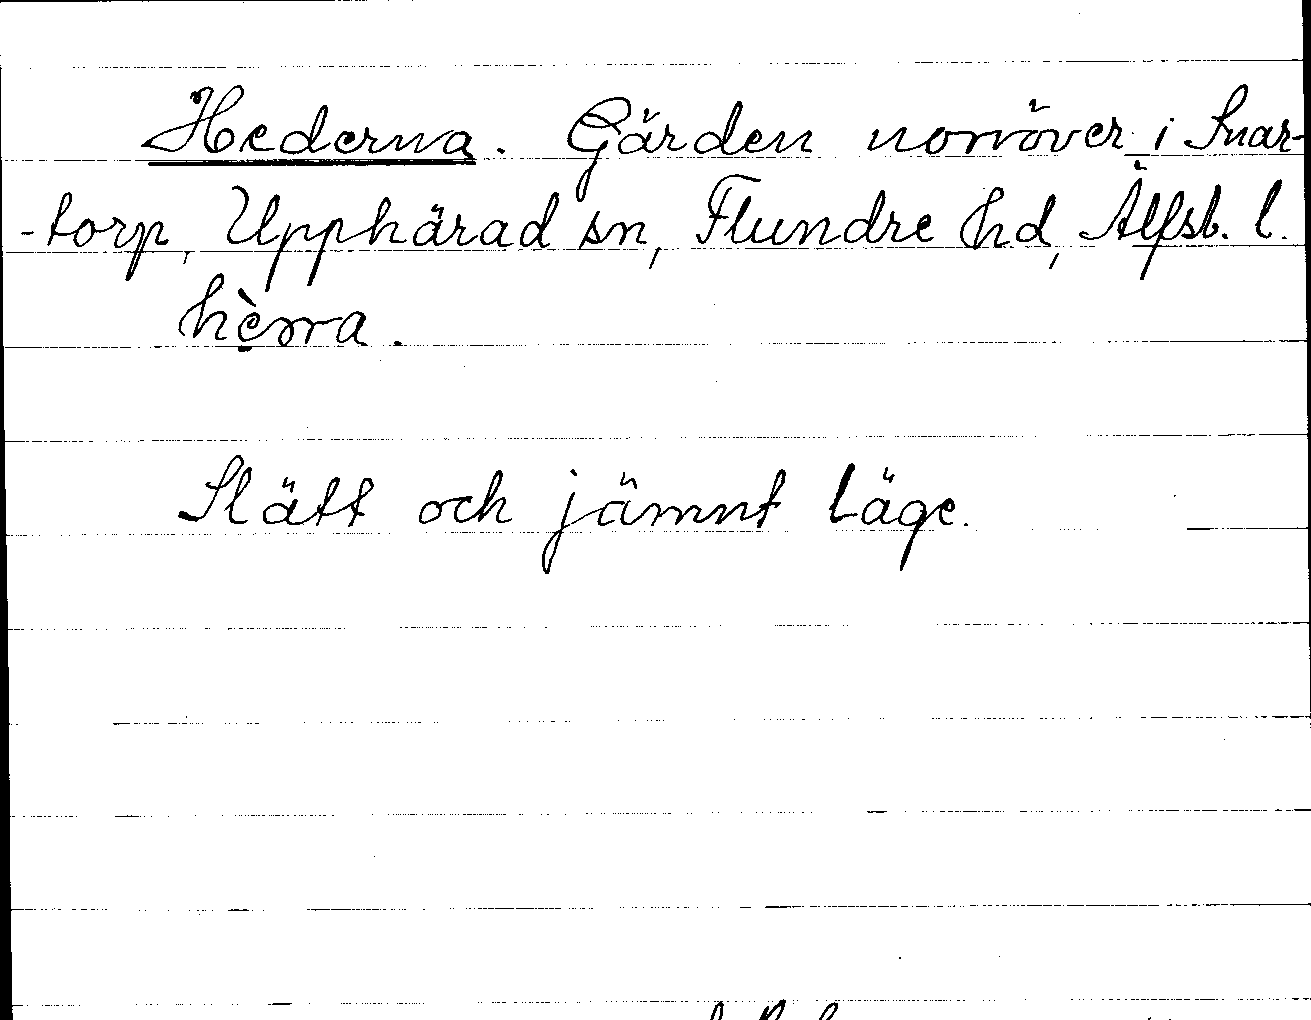 Hederna. Gärden norröver i Snar-
-torp, Upphärad sn, Flundre hd, Älfsb. l.
hèrra.
Slätt och jämnt läge.